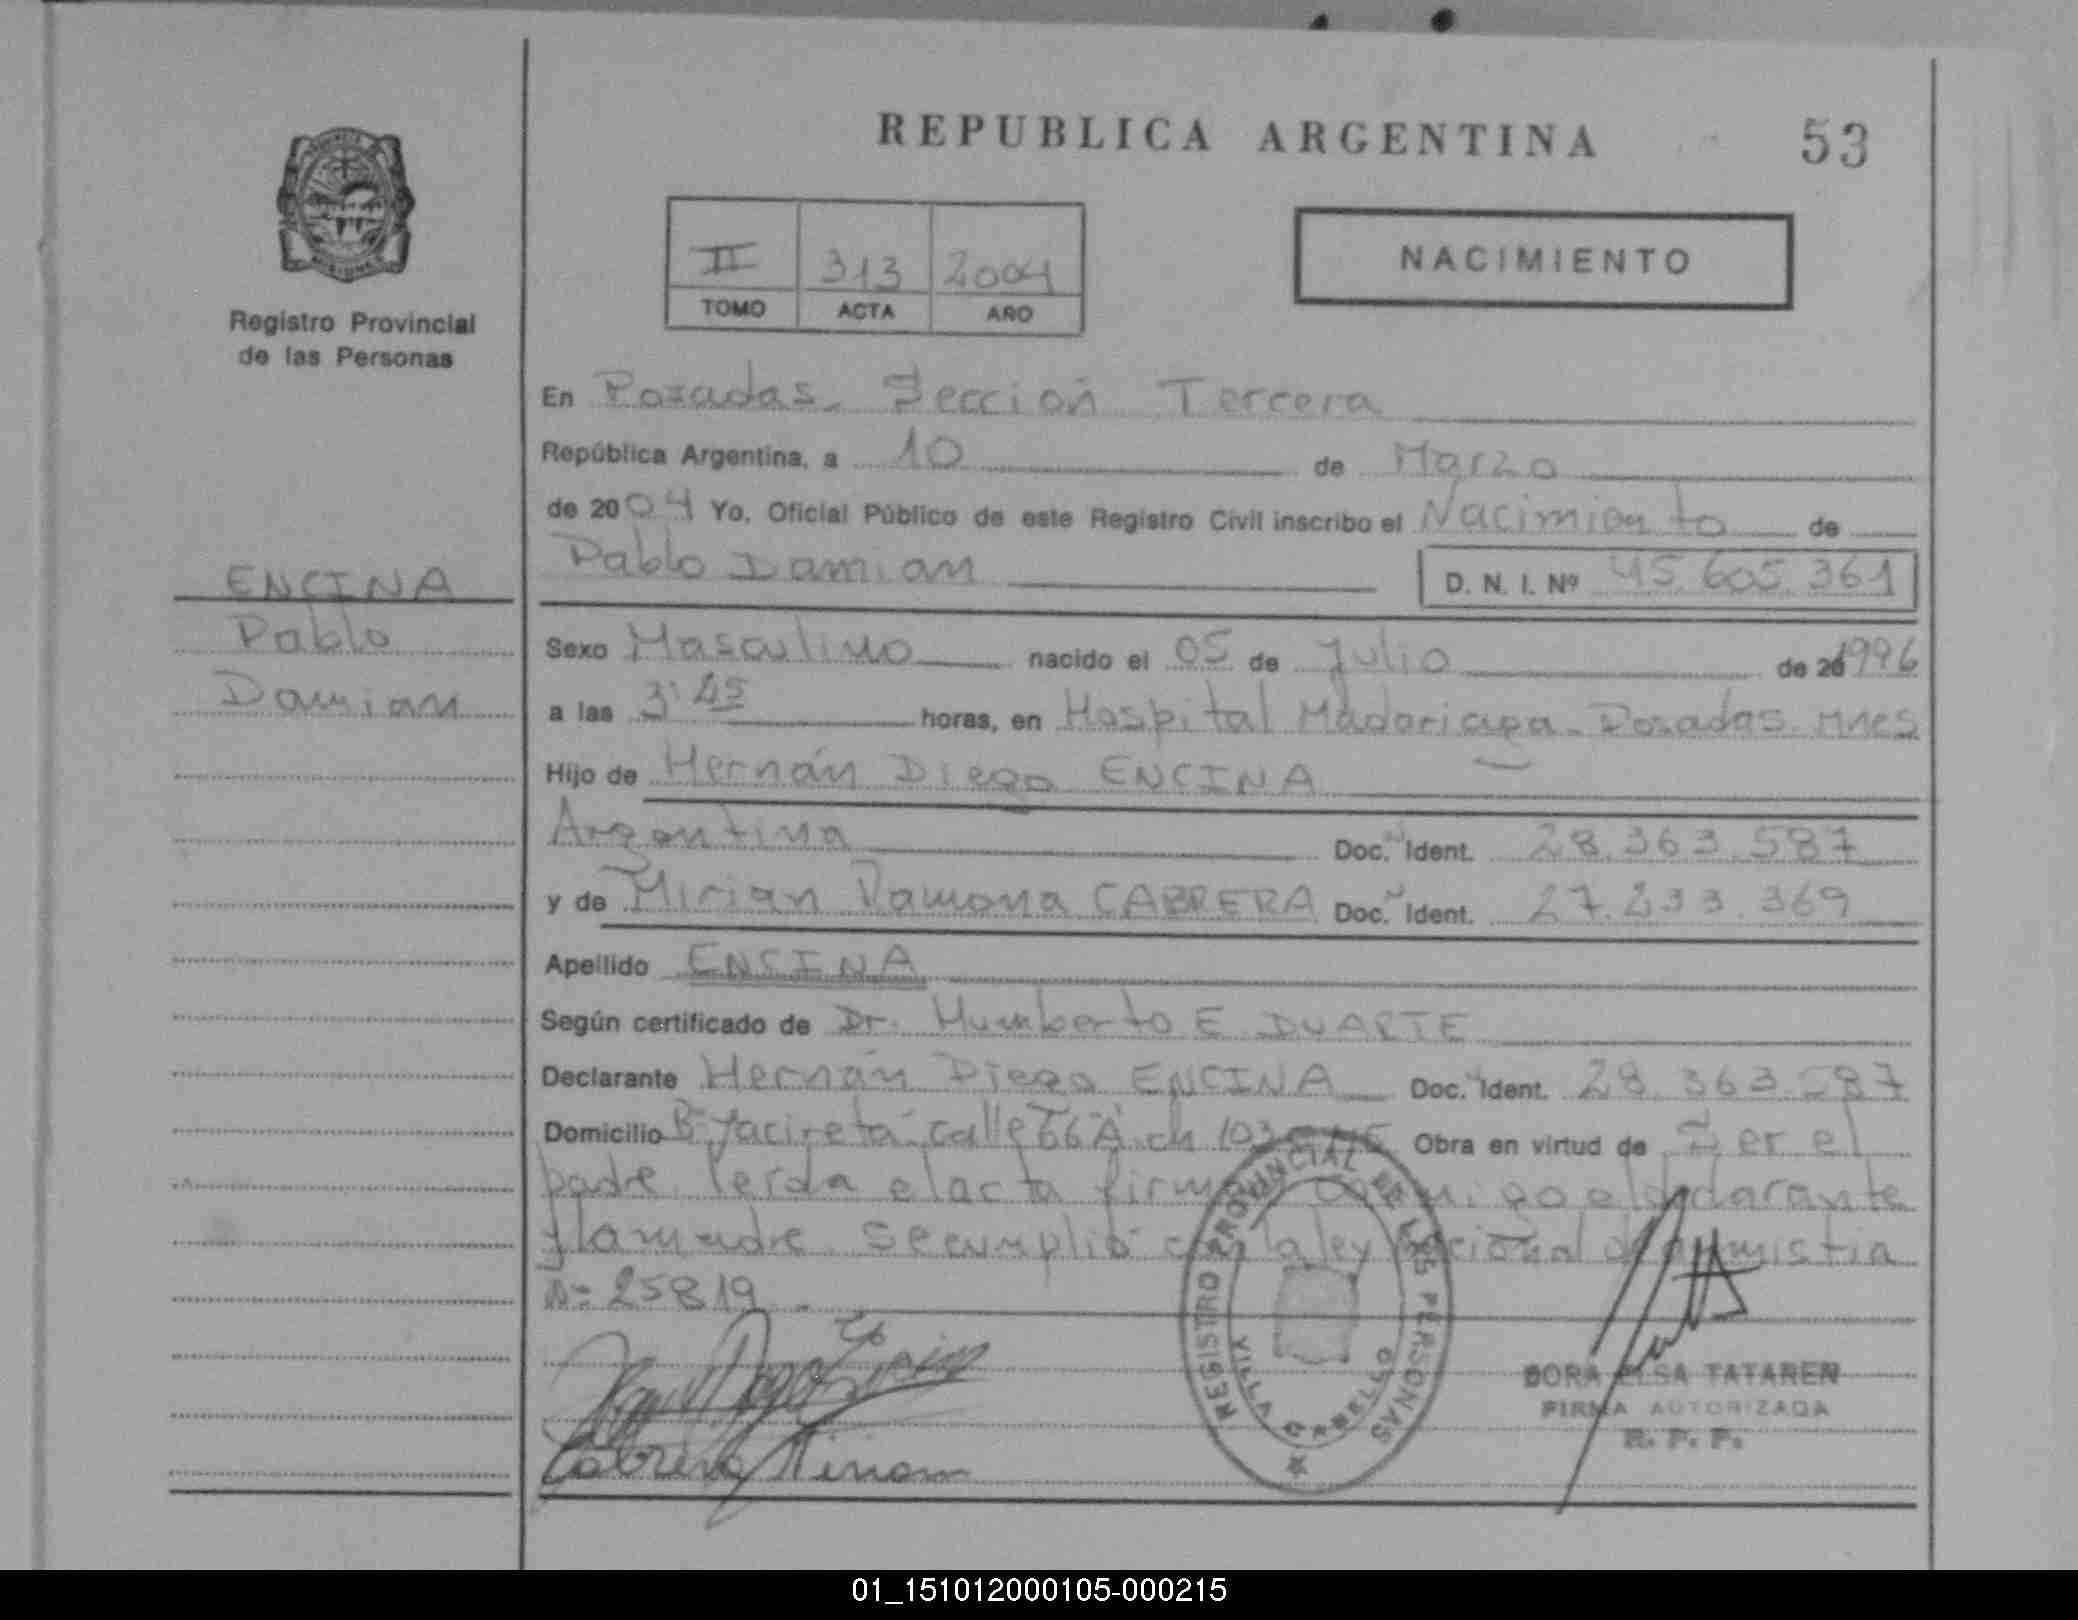 REPUBLICA ARGENTINA
53
II 313 2004
TOMO ACTA AÑO
NACIMIENTO
Registro Provincial
de las Personas
En Posadas. Sección Tercera
República Argentina, a 10 de Marzo
de 2004 Yo, Oficial Público de este Registro Civil inscribo el Nacimiento de
Pablo Damian D. N. I. Nº 45.605.361
ENCINA
Pablo
Damian
Sexo Masculino nacido el 05 de Julio de 20 1996
a las 3 45 horas, en Hospital Madariaga - Posadas Mnes
Hijo de Hernán Diego ENCINA
Argentina Doc. Ident. 28.363.587
y de Mirian Ramona CABRERA Doc. Ident. 27.233.369
Apellido ENCINA
Según certificado de Dr. Humberto E DUARTE
Declarante Hernán Diego ENCINA Doc. Ident. 28.363.587
Domicilio Bº Yacireta calle 66 A ch 103 Obra en virtud de Ser el
padre leida el acta firma el declarante
y la madre. Se cumplió con la ley nacional de amnistia
Nº 25819
REGISTRO PROVINCIAL DE LAS PERSONAS
VILLA CABELLO
Cabrera Mirian
DORA ELSA TATAREN
FIRMA AUTORIZADA
R. P. P.
01_151012000105-000215